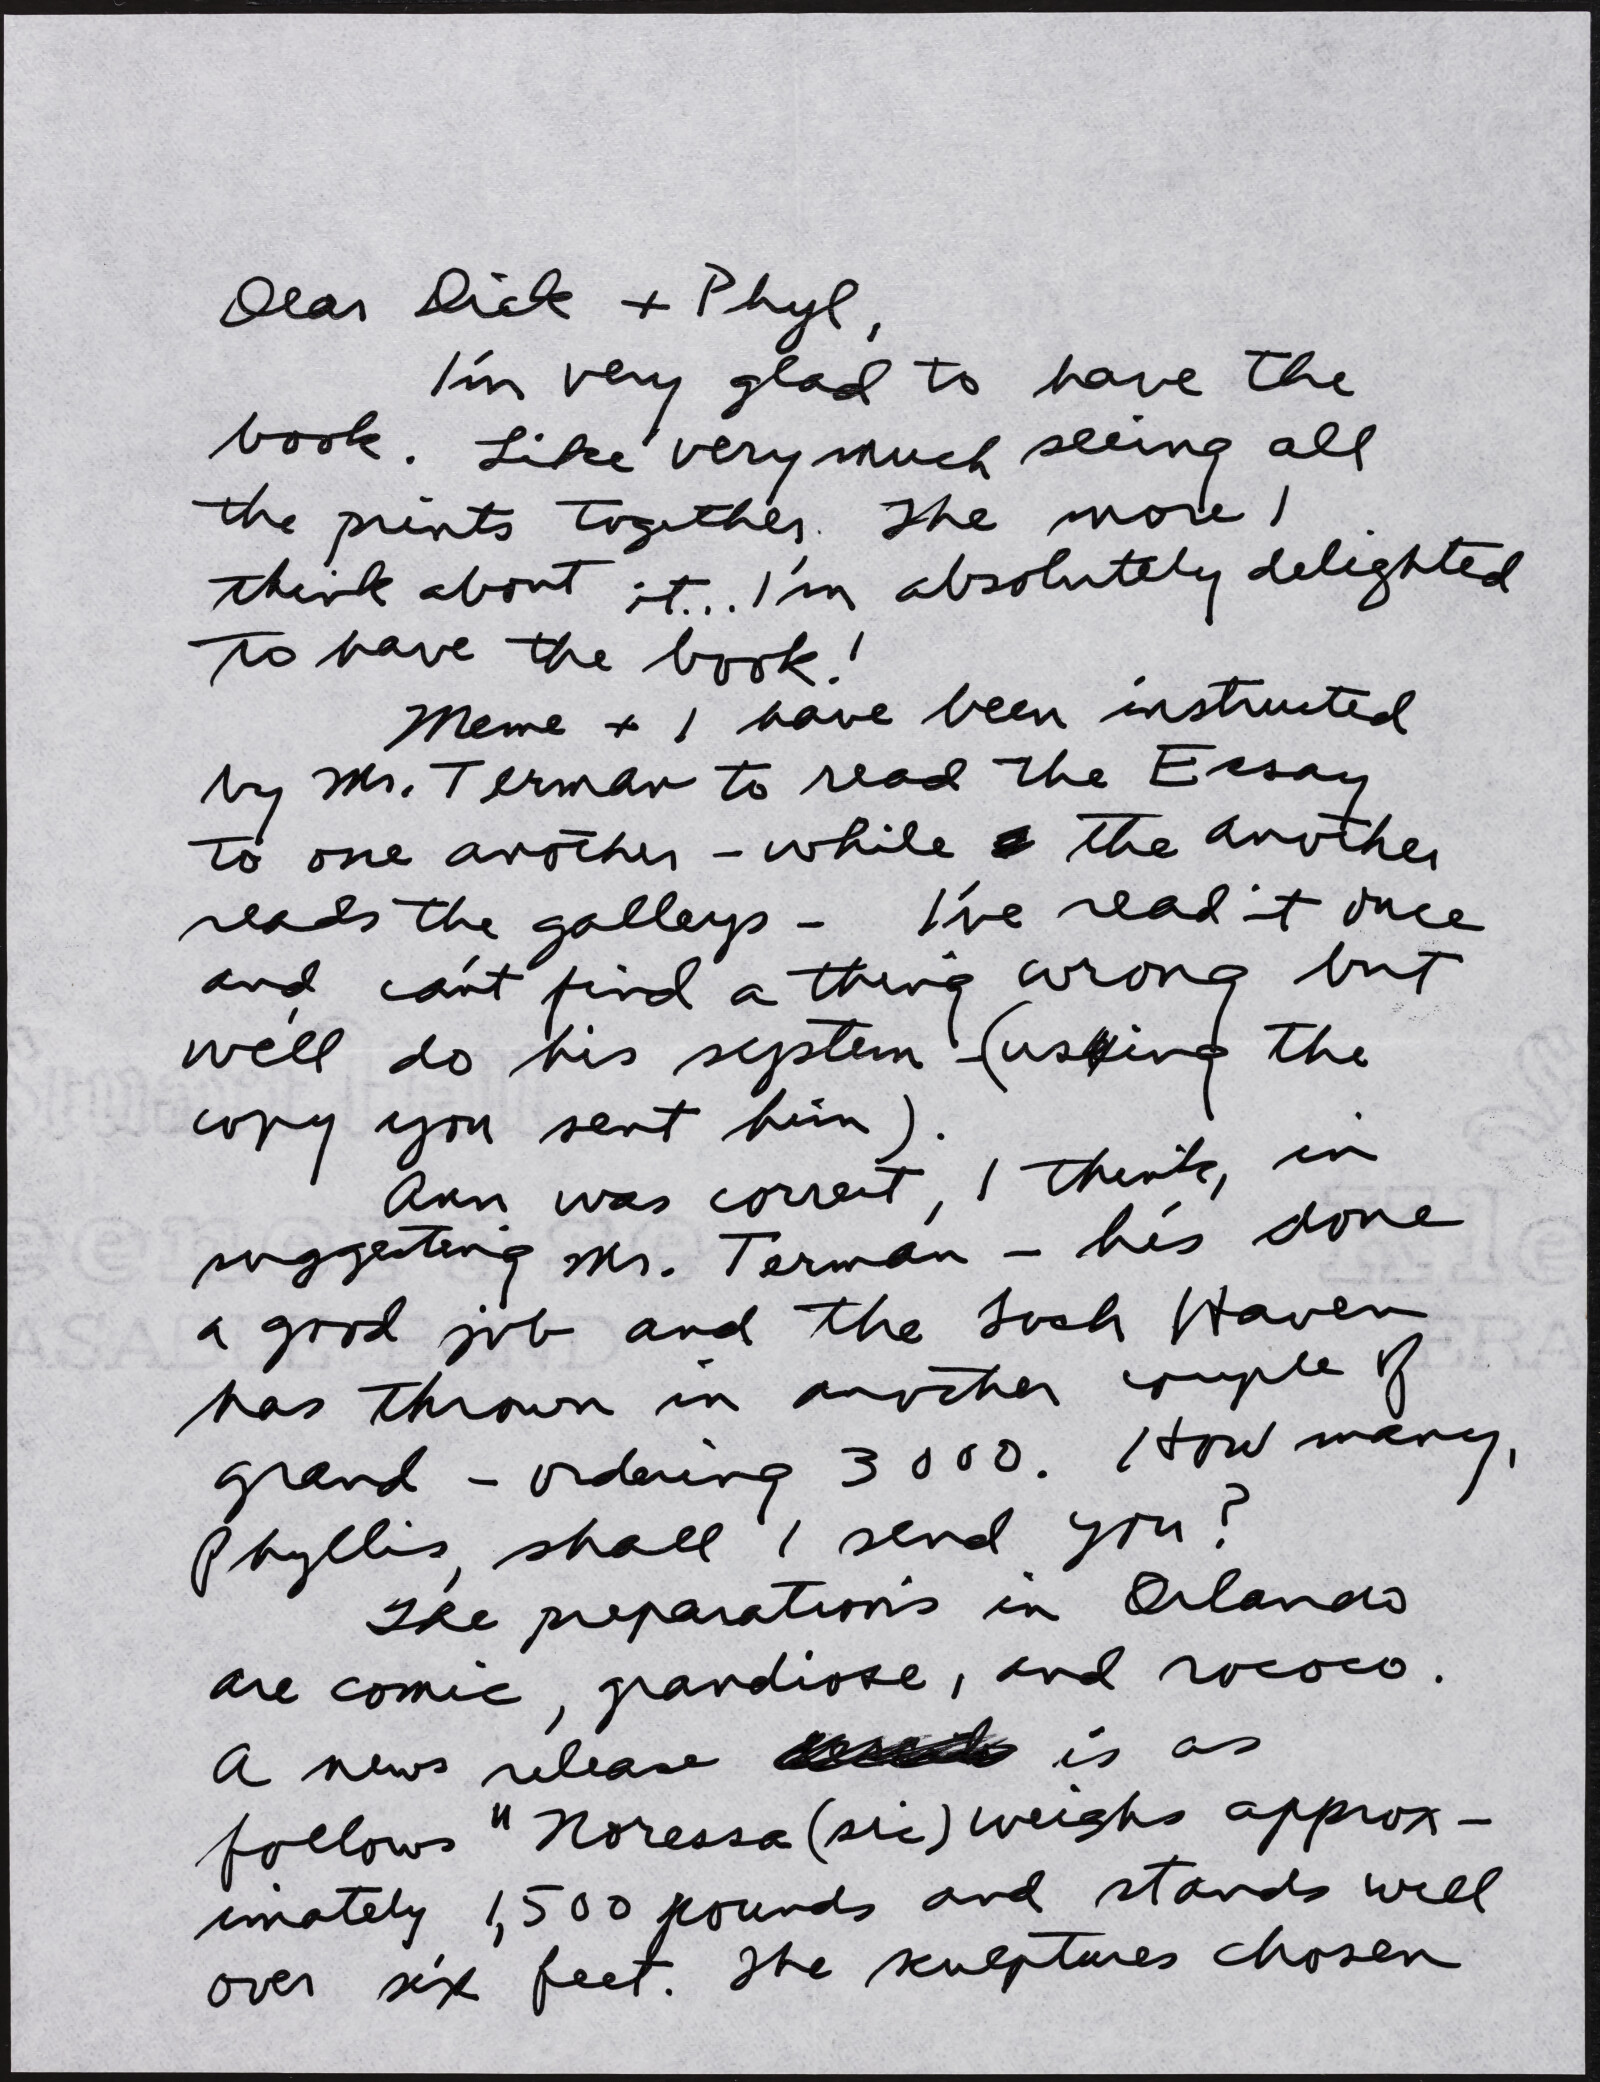 Dear Dick + Phyl,
I'm very glad to have the
book. Like very much seeing all
the prints together. The more I
think about it... I'm absolutely delighted
to have the book!
Meme + I have been instructed
by Mr. Terman to read the Essay
to one another - while the another
reads the galleys - I've read it once
and can't find a thing wrong but
we'll do his system - (using the
copy you sent him).
Ann was correct, I think, in
suggesting Mr. Terman - he's done
a good job and the Lock Haven
has thrown in another couple of
grand - ordering 3000. How many,
Phyllis, shall I send you?
The preparations in Orlando
are comic, grandiose, and rococo.
A news release is as
follows "Noressa (sic) weighs approx-
imately 1,500 pounds and stands well
over six feet. The sculptures chosen